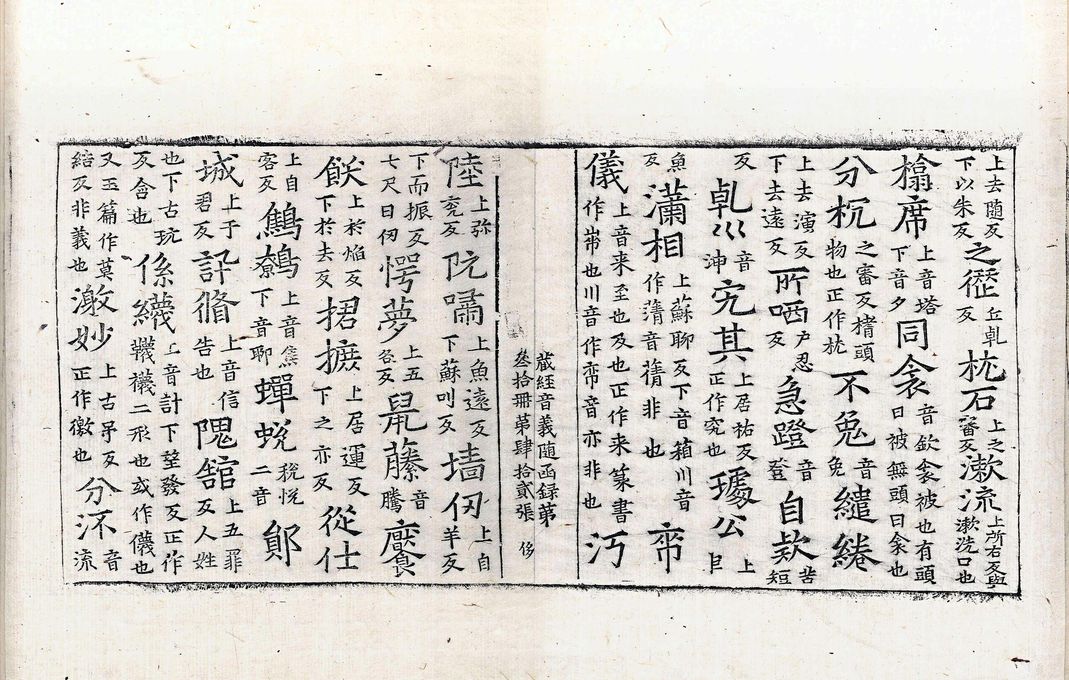 上去随反下以朱反之徑丘乹反枕石上之審反漱流上所右反與漱洗口也
榻席上音塔下音夕同衾音欽衾被也有頭曰被無頭曰衾也
分枕之審反榰頭物也正作枕不兔音免繾綣
上去演反下去遠反所哂尸忍反急蹬音登自欵苦短
反乹巛音坤宄其上居祐反正作究也璩公上巨
魚反瀟相上蘇聊反下音箱川音作蒲音蒨非也帣
儀上音来至也及也正作来篆書作𢁙也川音作帣音亦非也沔
藏經音義随函録第叁拾册第肆拾貳張 侈
陸上弥兖反阮嘯上魚遠反下蘇叫反墻仞上自羊反
下而振反七尺曰仞愕夢上五各反鼠藤音騰饜
餤上於焰反下於去反捃摭上居運反下之亦反從仕
上自客反鷦鷯上音焦下音聊蟬蛻税悦二音鄮
城上于君反訃脩上音信告也隗舘上五罪反人姓
也下古玩反舍也係襪上音計下望發反正作韈襪二形也或作儀也
又玉篇作莫結反非義也激妙上古弔反正作徼也分派音流